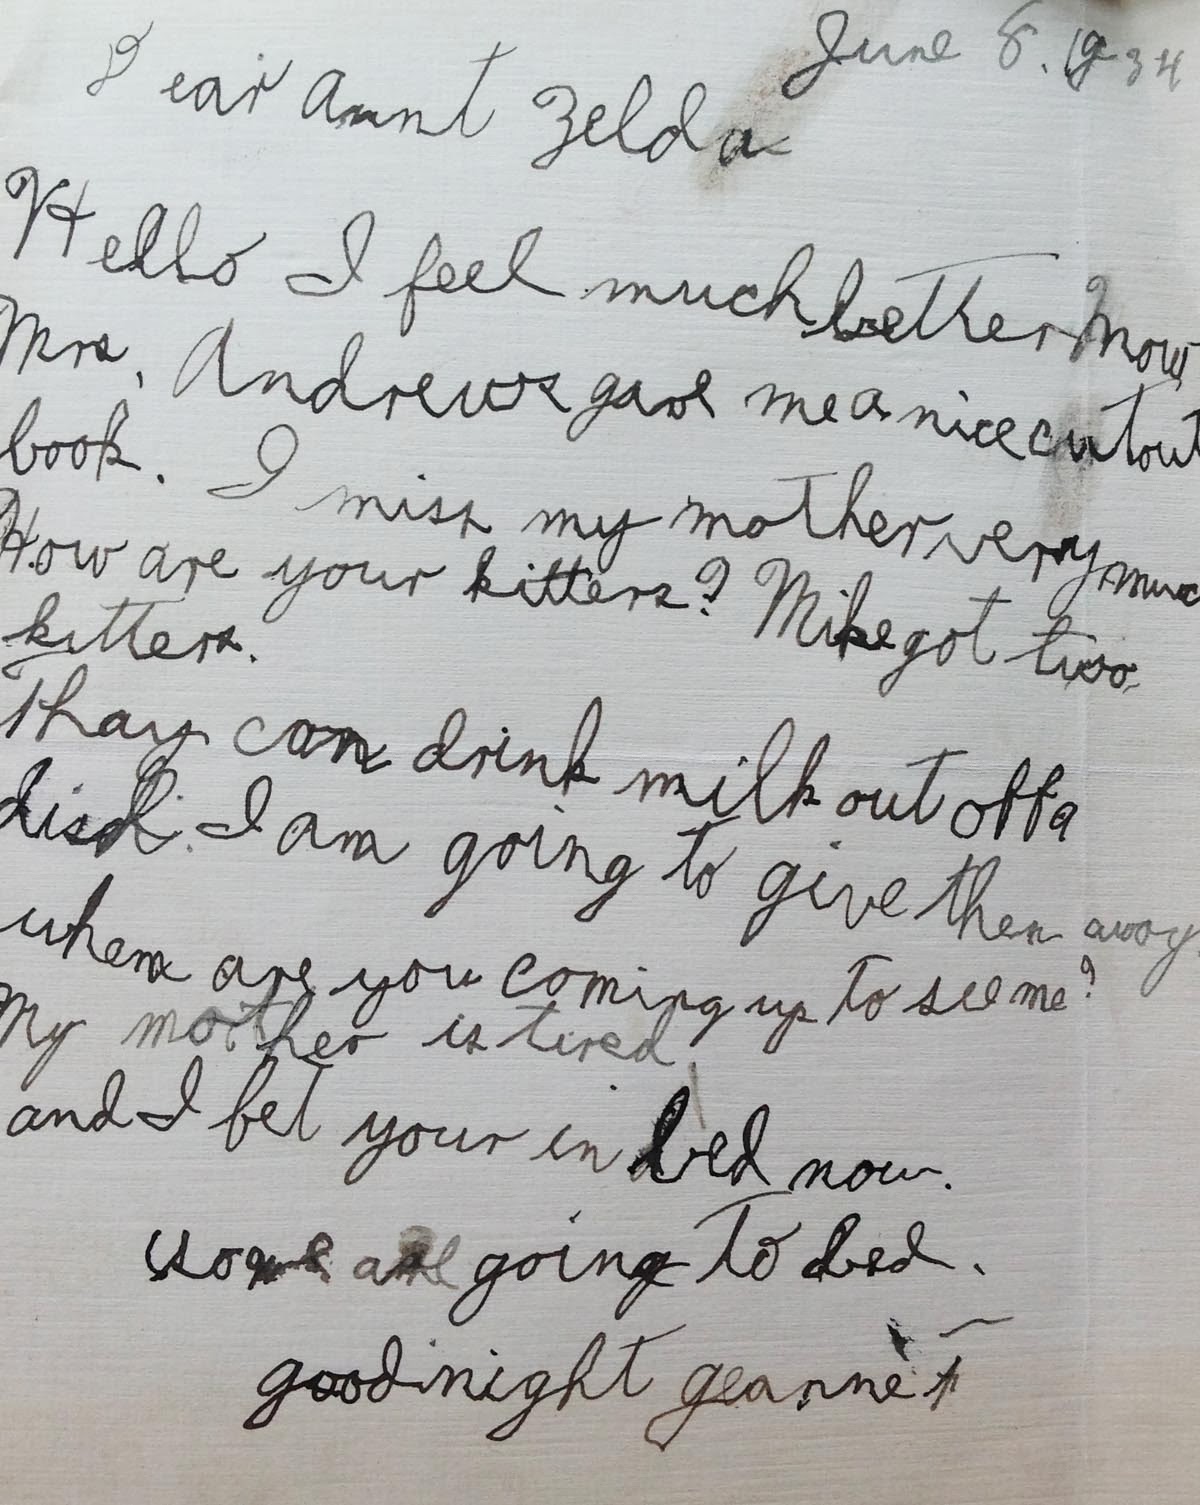 June 8. 1934
Dear aunt Zelda
Hello I feel much better now
Mrs. Andrews gave me a nice cutout
book. I miss my mother very muc
How are your kitters? Mike got two
kitters.
Thay can drink milk out offa
dish. I am going to give then away.
when are you coming up to see me?
My mother is tired
and I bet your in bed now.
are going to bed.
goodnight geannet